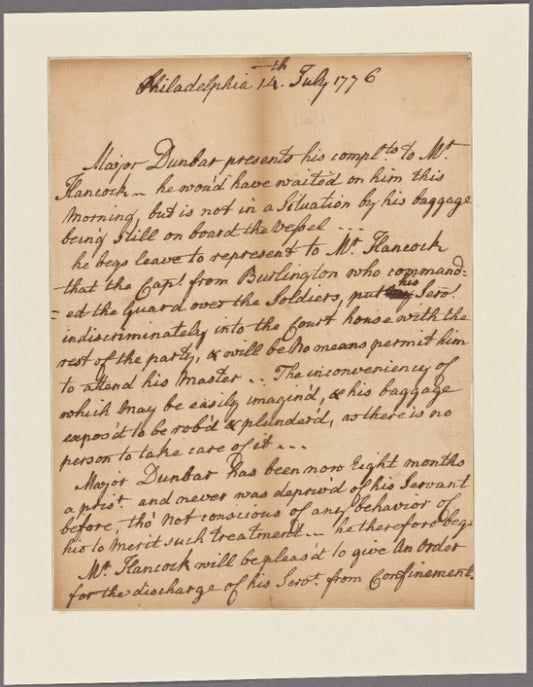 Philadelphia 14th. July 1776
Major Dunbar presents his complts. to Mr.
Hancock – he wou'd have waited on him this
Morning, but is not in a Situation by his baggage
being still on board the Vessel ...
he begs leave to represent to Mr. Hancock
that the Capt. from Burlington who command=
=ed the Guard over the Soldiers, put his Servt.
indiscriminately into the Court house with the
rest of the party, & will be No means permit him
to attend his Master .. The inconveniency of
which may be easily imagin'd, & his baggage
expos'd to be rob'd & plunder'd, as there is no
person to take care of it ...
Major Dunbar has been now Eight months
a prisr. and never was depriv'd of his Servant
before, tho' Not conscious of any behavior of
his to Merit such treatment .. he therefore begs
Mr. Hancock will be pleas'd to give An Order
for the discharge of his Servt. from Confinement.